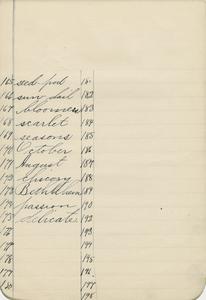 165 seed-pod 18
166 sun dail 182
167 bloomers 183
168 scarlet 184
169 seasons 185
170 October 186
171 August 187
172 chicory 188
173 Bethlehem 89
174 passion 190
175 delicate 192
176 193
177 194
178 195
179 196
180 197
198